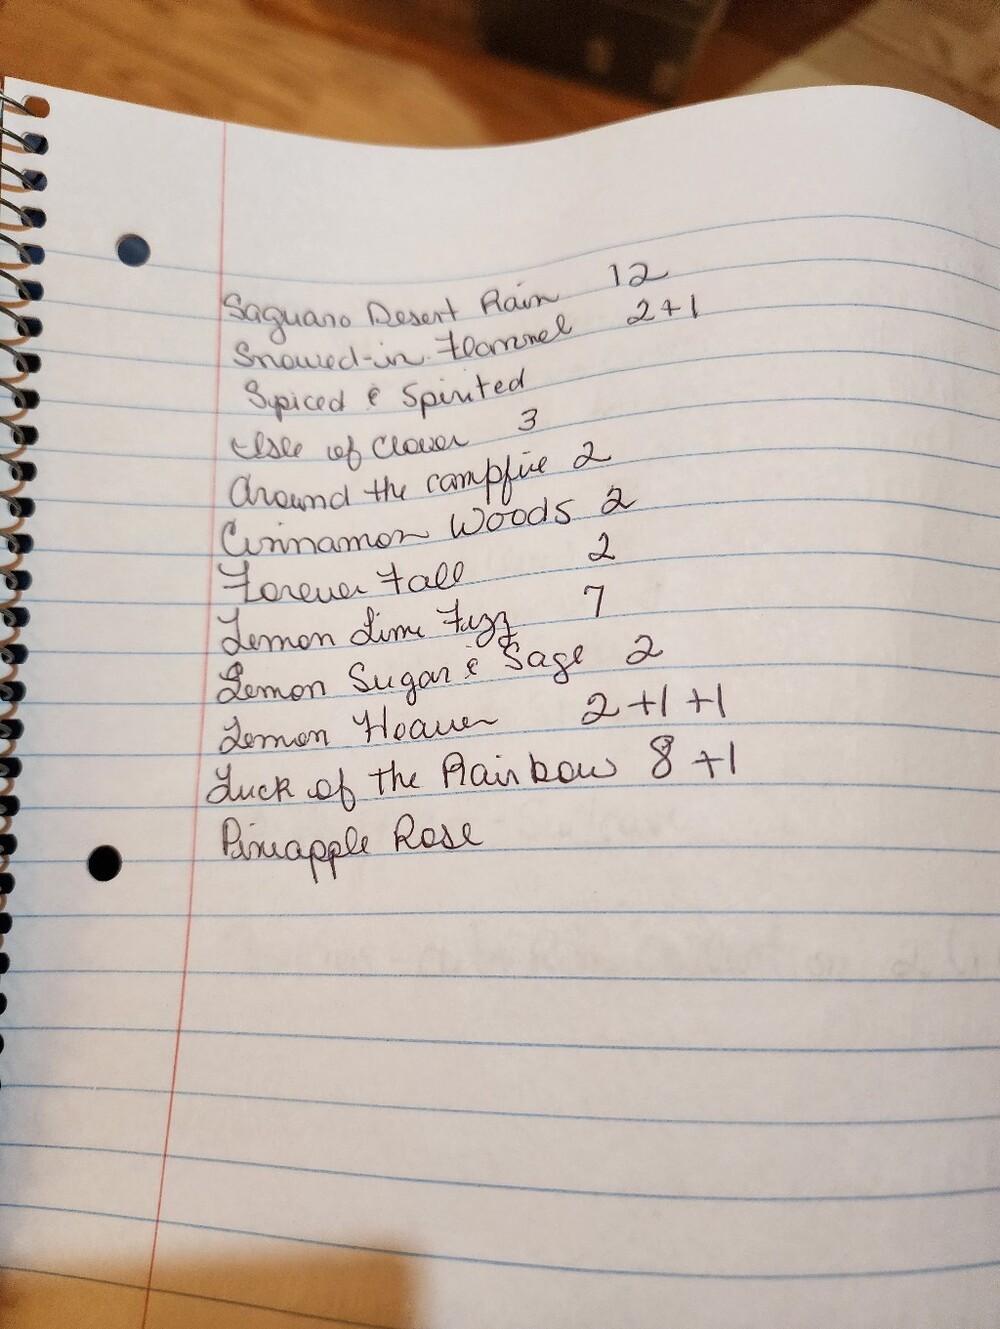 Saguaro Desert Rain 12
Snowed-in Flannel 2+1
Spiced & Spirited
Isle of Clover 3
Around the campfire 2
Cinnamon Woods 2
Forever Fall 2
Lemon Lime Fizz 7
Lemon Sugar & Sage 2
Lemon Heaven 2 +1 +1
Luck of the Rainbow 8 +1
Pineapple Rose